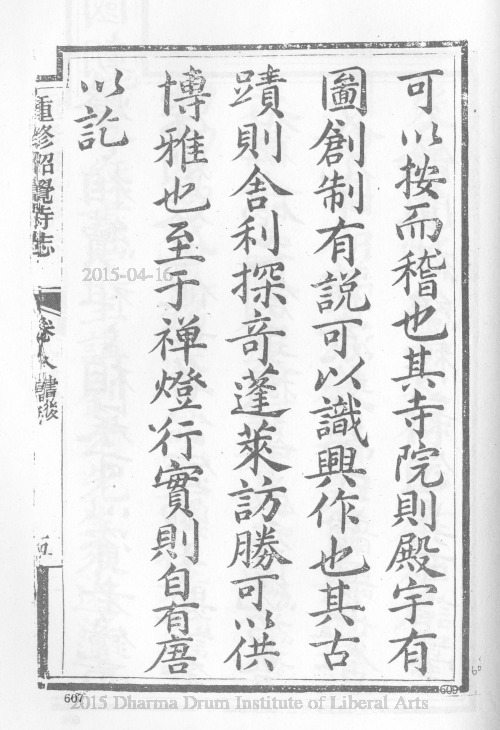 可以按而稽也其寺院則殿宇有
圖創制有說可以識興作也其古
蹟則舍利探奇蓬萊訪勝可以供
博雅也至于禪燈行實則自有唐
以訖
重修昭覺寺志
卷八 書後
2015-04-16
607
609
2015 Dharma Drum Institute of Liberal Arts